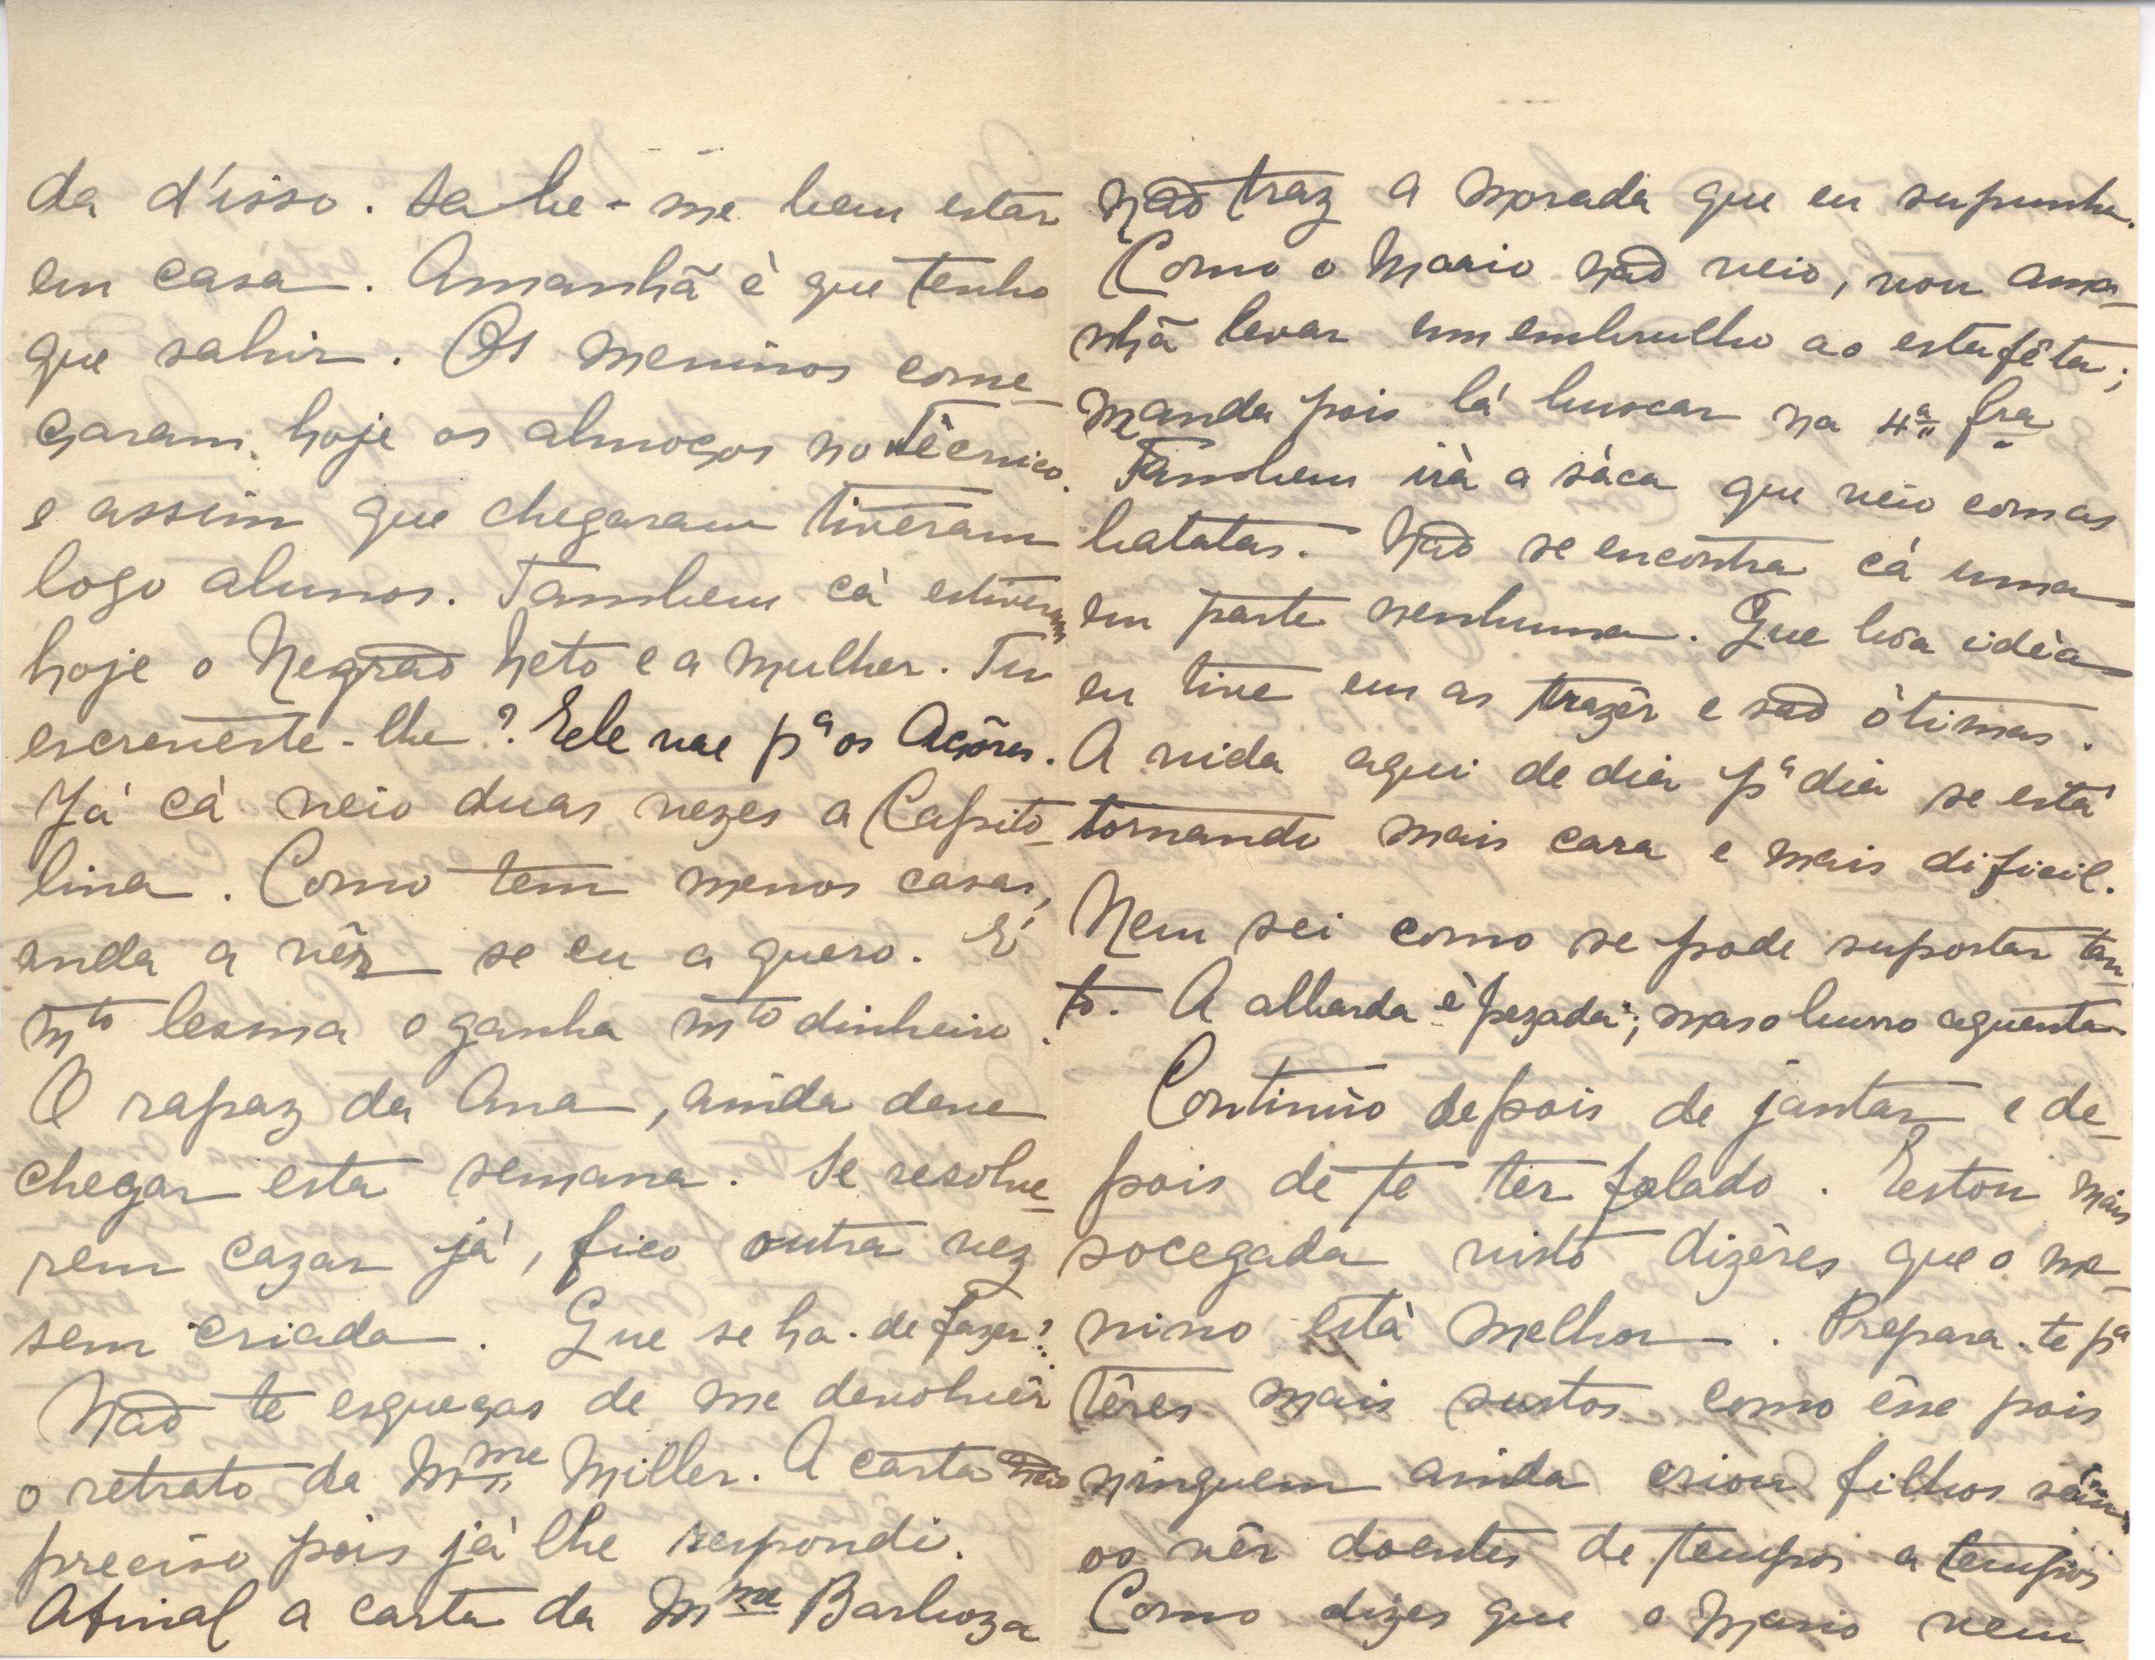 da d'isso. Sabe-me bem estar
em casa. Amanhã è que tenho
que sahir. Os meninos come-
çaram hoje os almoços no Tècnico.
e assim que chegaram tiveram
logo alunos. Tambem cà estiveram
hoje o Negrão Neto e a mulher. Tu
escreveste-lhe? Ele vae pª os Açôres.
Já cà veio duas vezes a Capito-
lina. Como tem menos casas,
anda a vêr se eu a quero. E'
mto lesma e ganha mto dinheiro.
O rapaz da Ana, ainda deve
chegar esta semana. Se resolve-
rem cazar já, fico outra vez
sem criada. Que se ha-de fazer?
Não te esqueças de me devolvêr
o retrato da Mme Miller. A carta não
preciso pois já lhe respondi.
Afinal a carta da Mme Barboza
não traz a morada que eu supunha.
Como o Mario não veio, vou ama-
nhã levar um embrulho ao estafêta;
manda pois lá buscar na 4ª fra
Tambem irà a sàca que veio com as
batatas. Não se encontra cá uma
em parte nenhuma. Que bôa idèa
eu tive em as trazêr e são òtimas.
A vida aqui de dia pª dia se está
tornando mais cara e mais dificil.
Nem sei como se pode suportar tan-
to. A albarda è pezada; mas o burro aguenta
Continúo depois de jantar e de-
pois de te ter falado. Estou mais
socegada visto dizêres que o me-
nino està melhor. Prepara-te pª
têres mais sustos como êsse pois
ninguem ainda criou filhos sem
os vêr doentes de tempos a tempos
Como dizes que o Mario vem